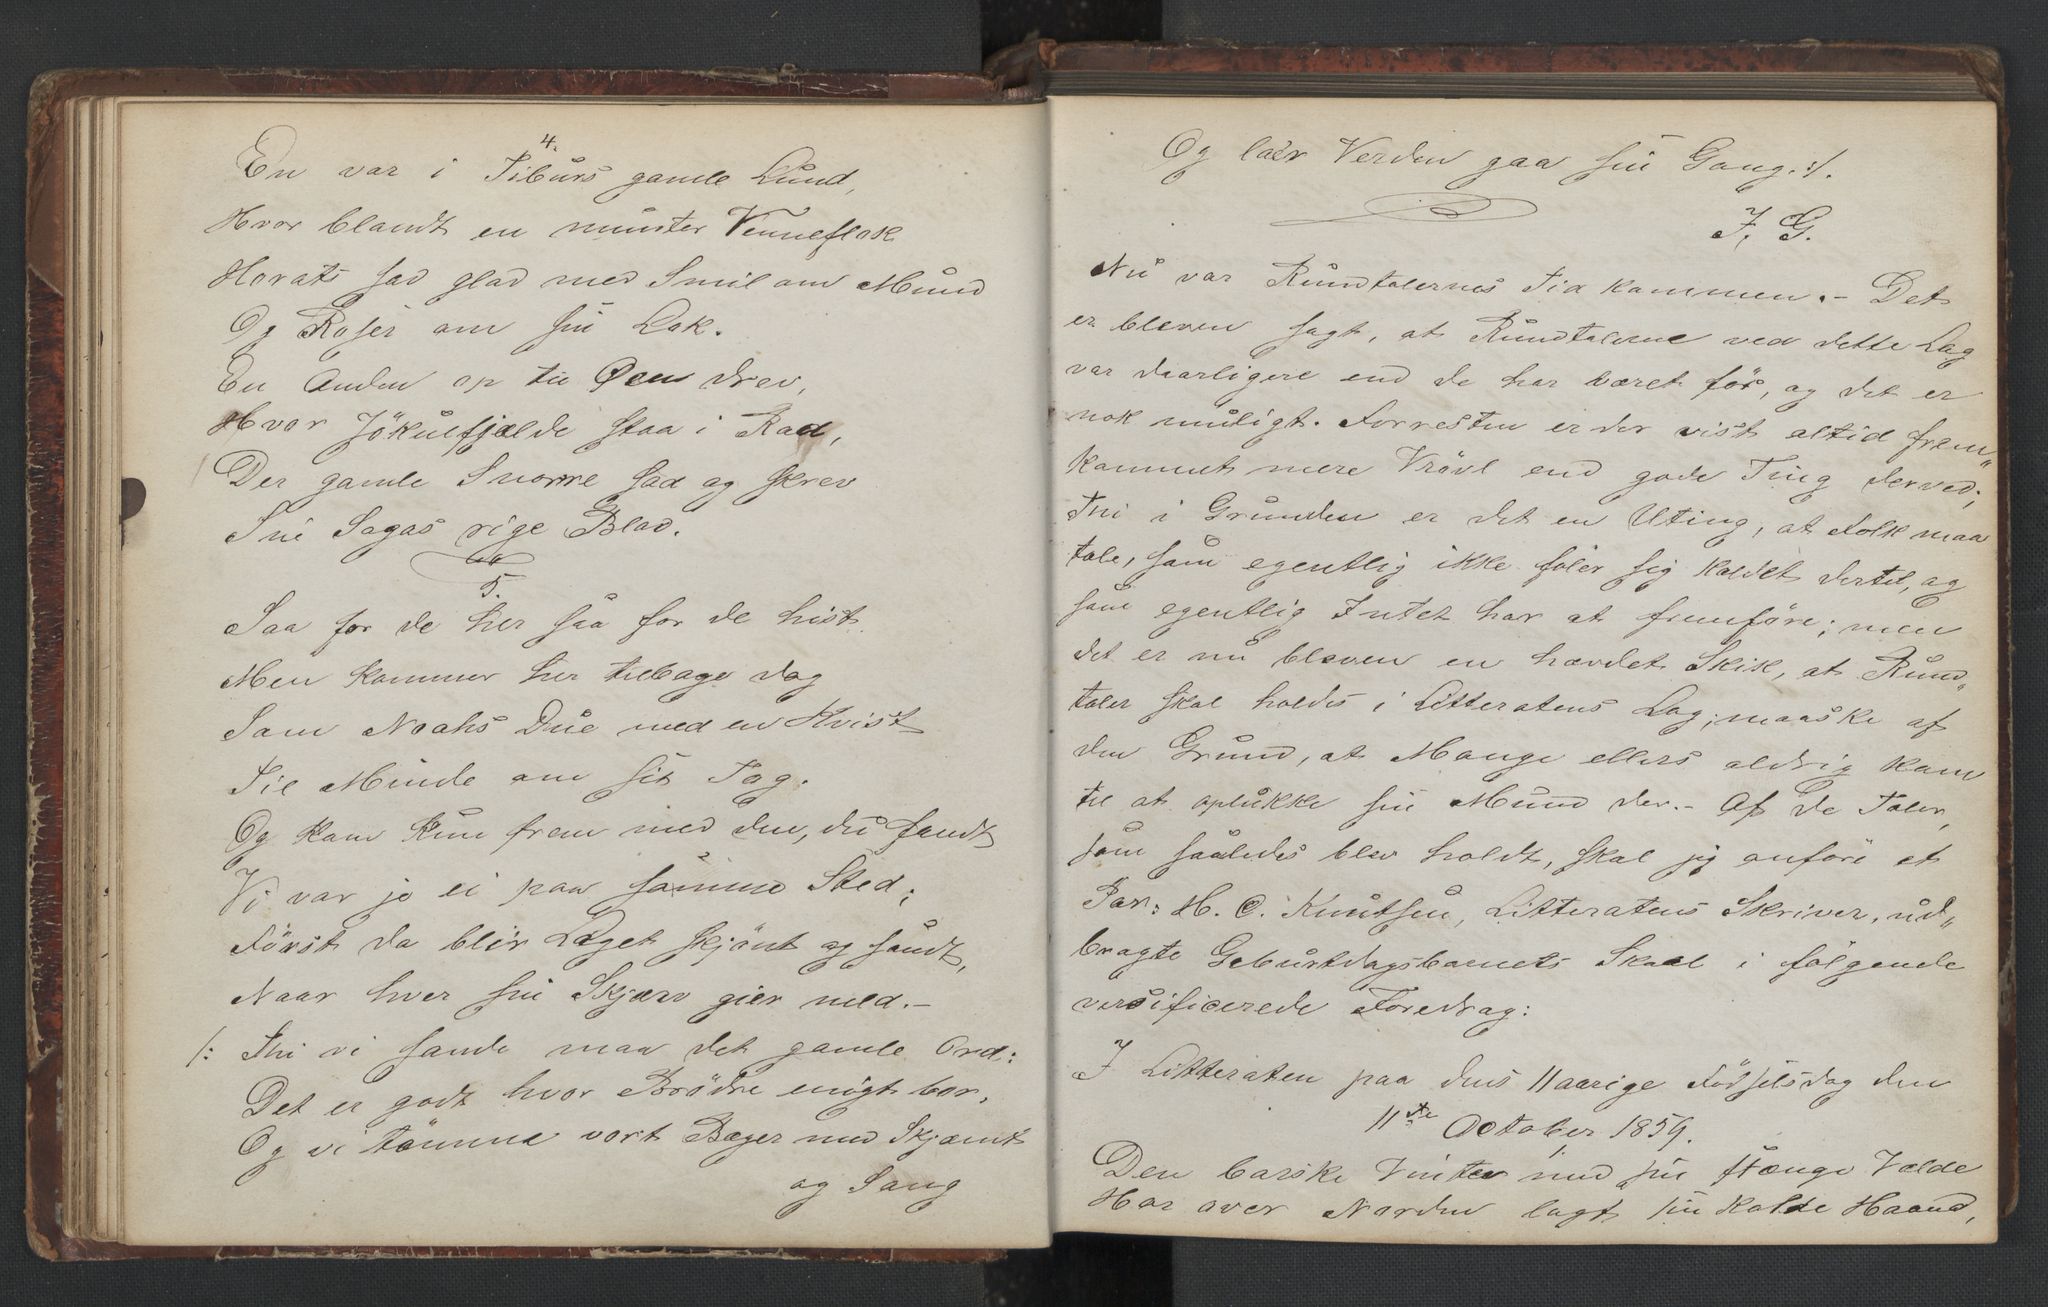 4.
En var i Tiburs gamle Lund,
Hvor blandt en munter Venneflok
Horats sad glad med Smil om Mund
Og Roser om sin Lok.
En Anden op til Øen drev,
Hvor Jökulfjelde staa i Rad,
Der gamle Snorre sad og skrev
Sine Sagas rige Blad.
5.
Saa for de her saa for de hist
Men kommer her tilbage dog
Som Noahs Due med en Kvist
Til Minde om sit Tog.
Og kom kun frem med den, du fandt
Vi var jo ei paa samme Sted;
Först da blir Laget skjönt og sandt,
Naar hver sin Skjærv gier med.-
/: Thi vi sande maa det gamle Ord:
Det er godt hvor Brödre enigt bor,
Og vi tömme vort Bæger med Skjæmt
og Sang
Og laer Verden gaa sin Gang. :/.
J. G.
Nu var Rundtalernes Tid kommen. - Det
er bleven sagt, at Rundtalerne ved dette Lag
var daarligere end de har været för, og det er
nok muligt. Forresten er der vist altid frem„
kommet mere Vrövl end gode Ting derved;
Thi i Grunden er det en Uting, at Folk maa
tale, som egentlig ikke föler sig kaldet dertil, og
som egentlig Intet har at fremföre; men
det er nu bleven en hævdet Skik, at Rund„
taler skal holdes i Litteratens Lag; maaske af
den Grund, at Mange ellers aldrig kom
til at oplukke sin Mund der. - Af de Taler,
som saaledes blev holdt, skal jeg anföre et
Par: H. C. Knutsen, Litteratens Skriver, ud„
bragte Geburtdagsbarnets Skaal i fölgende
versificerede Foredrag:
I Litteraten paa dens 11aarige Födselsdag den
11te October 1859.
Den barske Vinter med sin strænge Vælde
Har over Norden lagt sin kolde Haand,